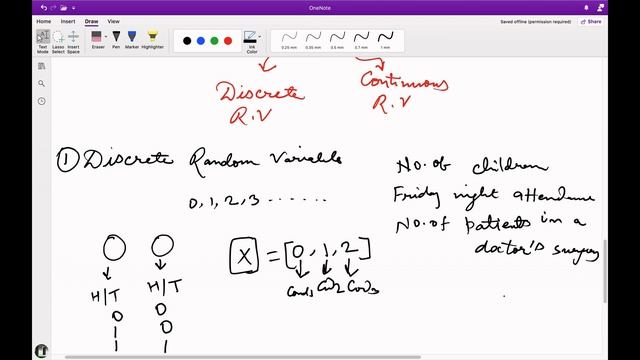 OneNote
Home Insert Draw View
Saved offline (permission required)
Text Mode
Lasso Select
Insert Space
Eraser
Pen
Marker
Highlighter
Ink Color
0.25 mm
0.35 mm
0.5 mm
0.7 mm
1 mm
Discrete R.V
Continuous R.V
① Discrete Random Variable
0, 1, 2, 3 ......
No. of children
Friday night attendance
No. of patients in a
doctor's surgery
X = [0, 1, 2]
H/T H/T
0 0
1 0
1 1